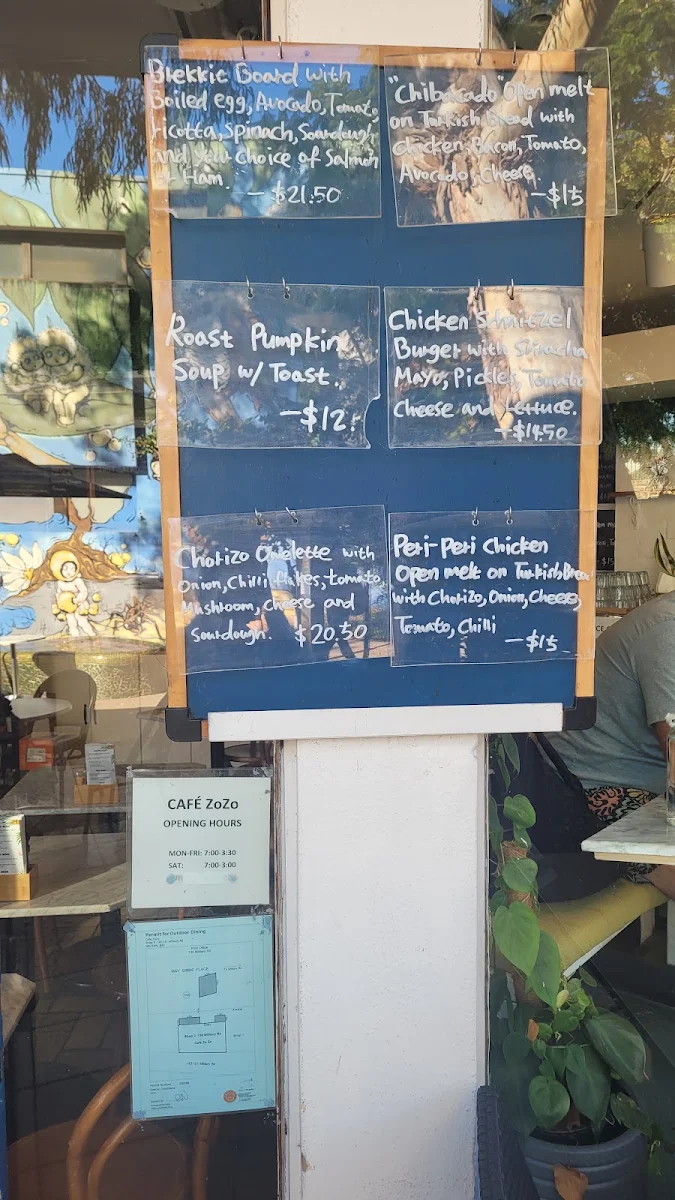 Brekkie Board with
Boiled egg, Avocado, Tomato,
ricotta, Spinach, Sourdough
and your choice of Salmon
Ham.
- $21.50
"Chilbacado" Open melt
on Turkish bread with
chicken, Bacon, Tomato,
Avocado, Cheese.
- $15
Roast Pumpkin
Soup w/ Toast.
- $12.
Chicken Schnitzel
Burger with Sriracha
Mayo, Pickles, Tomato
cheese and Lettuce.
- $14.50
Chorizo Omelette with
Onion, Chilli flakes, tomato,
Mushroom, cheese and
Sourdough. $20.50
Peri-Peri Chicken
Open melt on Turkish Bread
with Chorizo, Onion, Cheese,
Tomato, Chilli
- $15
CAFÉ ZoZo
OPENING HOURS
MON-FRI: 7:00-3:30
SAT: 7:00-3:00
Permit for Outdoor Dining